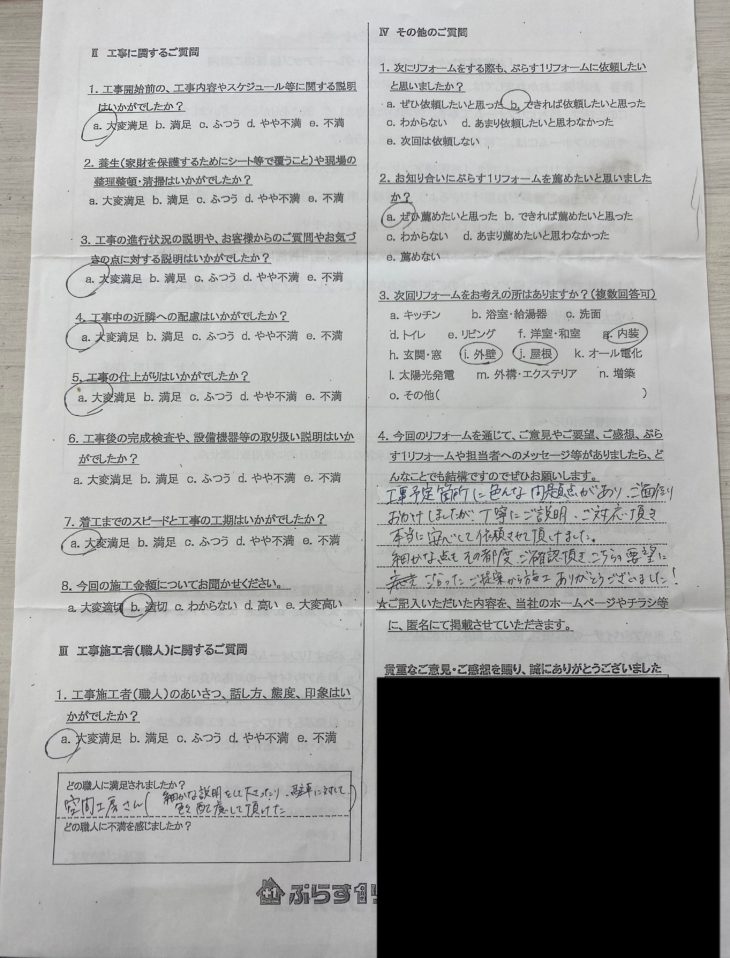 Ⅱ 工事に関するご質問
1. 工事開始前の、工事内容やスケジュール等に関する説明
はいかがでしたか？
a. 大変満足 b. 満足 c. ふつう d. やや不満 e. 不満
2. 養生(家財を保護するためにシート等で覆うこと)や現場の
整理整頓・清掃はいかがでしたか？
a. 大変満足 b. 満足 c. ふつう d. やや不満 e. 不満
3. 工事の進行状況の説明や、お客様からのご質問やお気づ
きの点に対する説明はいかがでしたか？
a. 大変満足 b. 満足 c. ふつう d. やや不満 e. 不満
4. 工事中の近隣への配慮はいかがでしたか？
a. 大変満足 b. 満足 c. ふつう d. やや不満 e. 不満
5. 工事の仕上がりはいかがでしたか？
a. 大変満足 b. 満足 c. ふつう d. やや不満 e. 不満
6. 工事後の完成検査や、設備機器等の取り扱い説明はいか
がでしたか？
a. 大変満足 b. 満足 c. ふつう d. やや不満 e. 不満
7. 着工までのスピードと工事の工期はいかがでしたか？
a. 大変満足 b. 満足 c. ふつう d. やや不満 e. 不満
8. 今回の施工金額についてお聞かせください。
a. 大変適切 b. 適切 c. わからない d. 高い e. 大変高い
Ⅲ 工事施工者(職人)に関するご質問
1. 工事施工者(職人)のあいさつ、話し方、態度、印象はい
かがでしたか？
a. 大変満足 b. 満足 c. ふつう d. やや不満 e. 不満
どの職人に満足されましたか？
空間工房さん(細かな説明をして下さったり、駐車に対して
色々配慮して頂けた)
どの職人に不満を感じましたか？
ぷらす1
Ⅳ その他のご質問
1. 次にリフォームをする際も、ぷらす1リフォームに依頼したい
と思いましたか？
a. ぜひ依頼したいと思った b. できれば依頼したいと思った
c. わからない d. あまり依頼したいと思わなかった
e. 次回は依頼しない
2. お知り合いにぷらす1リフォームを薦めたいと思いました
か？
a. ぜひ薦めたいと思った b. できれば薦めたいと思った
c. わからない d. あまり薦めたいと思わなかった
e. 薦めない
3. 次回リフォームをお考えの所はありますか？(複数回答可)
a. キッチン b. 浴室・給湯器 c. 洗面
d. トイレ e. リビング f. 洋室・和室 g. 内装
h. 玄関・窓 i. 外壁 j. 屋根 k. オール電化
l. 太陽光発電 m. 外構・エクステリア n. 増築
o. その他( )
4. 今回のリフォームを通じて、ご意見やご要望、ご感想、ぷら
す1リフォームや担当者へのメッセージ等がありましたら、ど
んなことでも結構ですのでぜひお願いします。
工事予定箇所に色んな問題点があり、ご面倒
おかけしましたが、丁寧にご説明、ご対応頂き
本当に安心して依頼させて頂けました。
細かな点もその都度ご確認頂き、こちらの要望に
沿ったご提案から施工ありがとうございました！
★ご記入いただいた内容を、当社のホームページやチラシ等
に、匿名にて掲載させていただきます。
貴重なご意見・ご感想を賜り、誠にありがとうございました